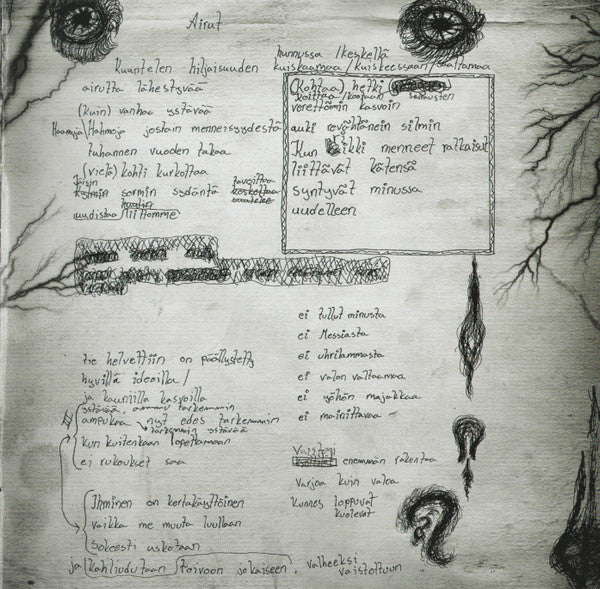 Airut
hunnussa / keskellä
Kuuntelen hiljaisuuden kuiskaamaa / kuiskeessaan / soittamaa
airutta lähestyvää
(kuin) vanhaa ystävää
Haamuja / Hahmoja jostain menneisyydestä
tuhannen vuoden takaa
(vielä) kohti kurkottaa
Jäisin tavoittaa
kylmin sormin sydäntä koskettaa
uudistaa liittomme
(Kohtaa) hetki
koittaa
verettömin kasvoin
auki revähtänein silmin
Kun kaikki menneet ratkaisut
liittävät kätensä
syntyvät minussa
uudelleen
ei tullut minusta
ei Messiasta
ei uhrilammasta
ei valon valtaamaa
ei yöhön majakkaa
ei mainittavaa
tie helvettiin on päällystetty
hyvillä ideoilla /
ja kauniilla kasvoilla
ystävää, ammu tarkemmin
ampukaa nyt edes tarkemmin
tarkemmin ystävää
kun kuitenkaan lopettamaan
ei rukoukset saa
Vaiston
enemmän rakentaa
varjoa kuin valoa
kunnes loppuvat
kuolevat
Ihminen on kertakäyttöinen
vaikka me muuta luullaan
sokeasti uskotaan
ja kahliudutaan toivoon jokaiseen, valheeksi
vaistottuun